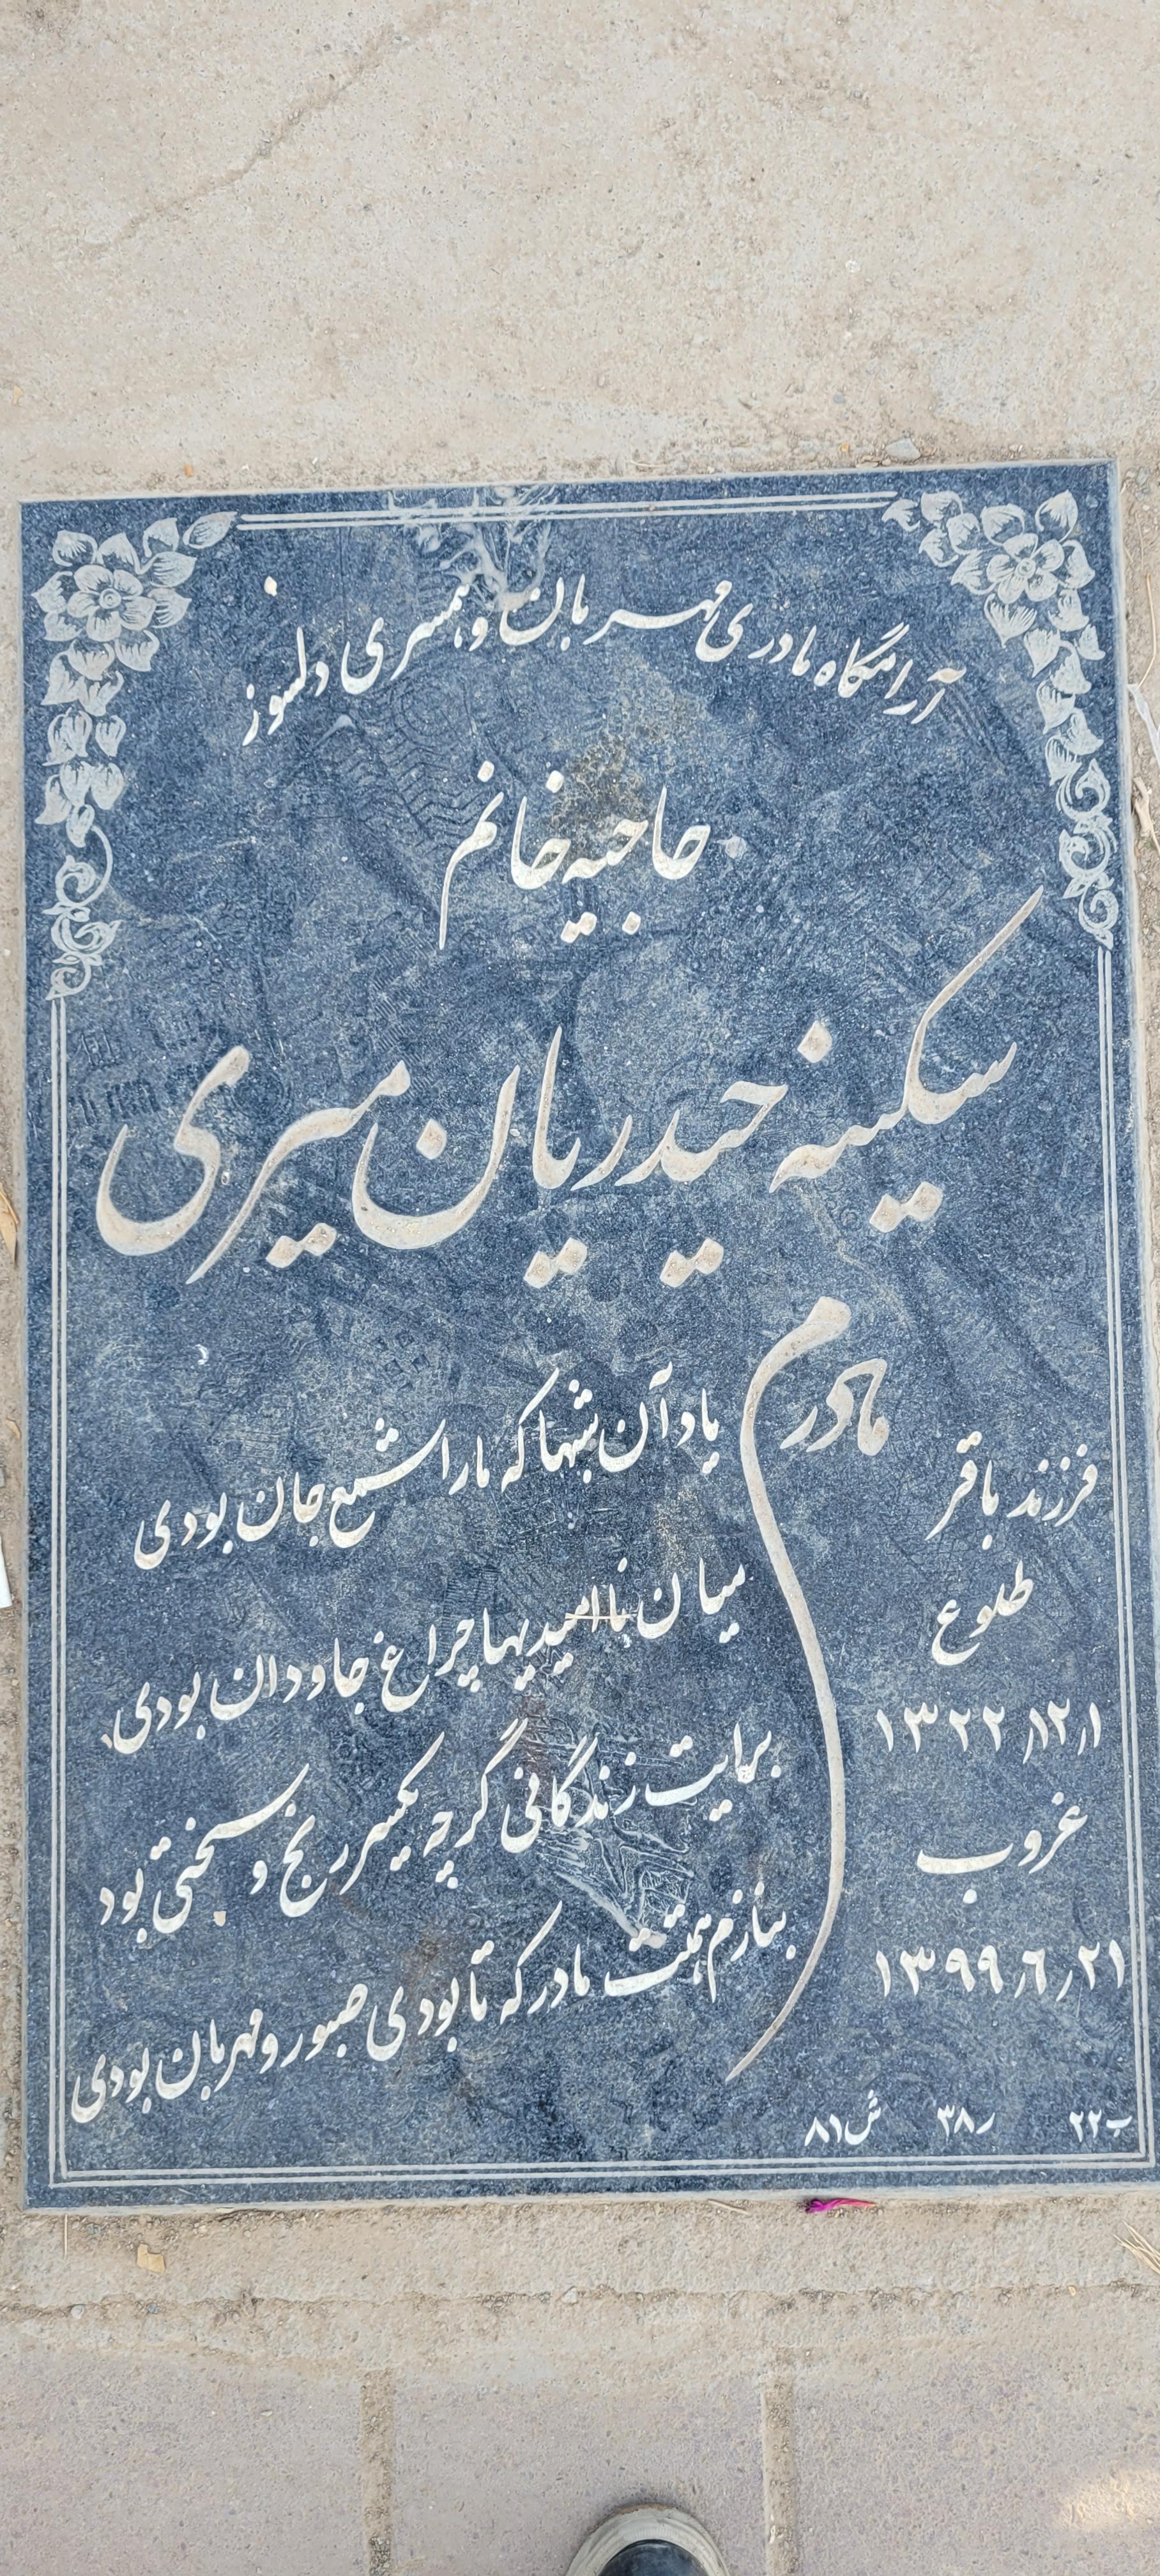 آرامگاه مادری مهربان و همسری دلسوز
حاجیه خانم
سکینه حیدریان میری
مادرم
یاد آن شبها که ما را شمع جان بودی
میان ناامیدیها چراغ جاودان بودی
برایت زندگانی گرچه یکسر رنج و سختی بود
بنازم همتت مادر که تا بودی صبور و مهربان بودی
فرزند باقر
طلوع
۱۳۲۲/۱۲/۱
غروب
۱۳۹۹/۶/۲۱
ب۲۲ ر۳۸ ش۸۱